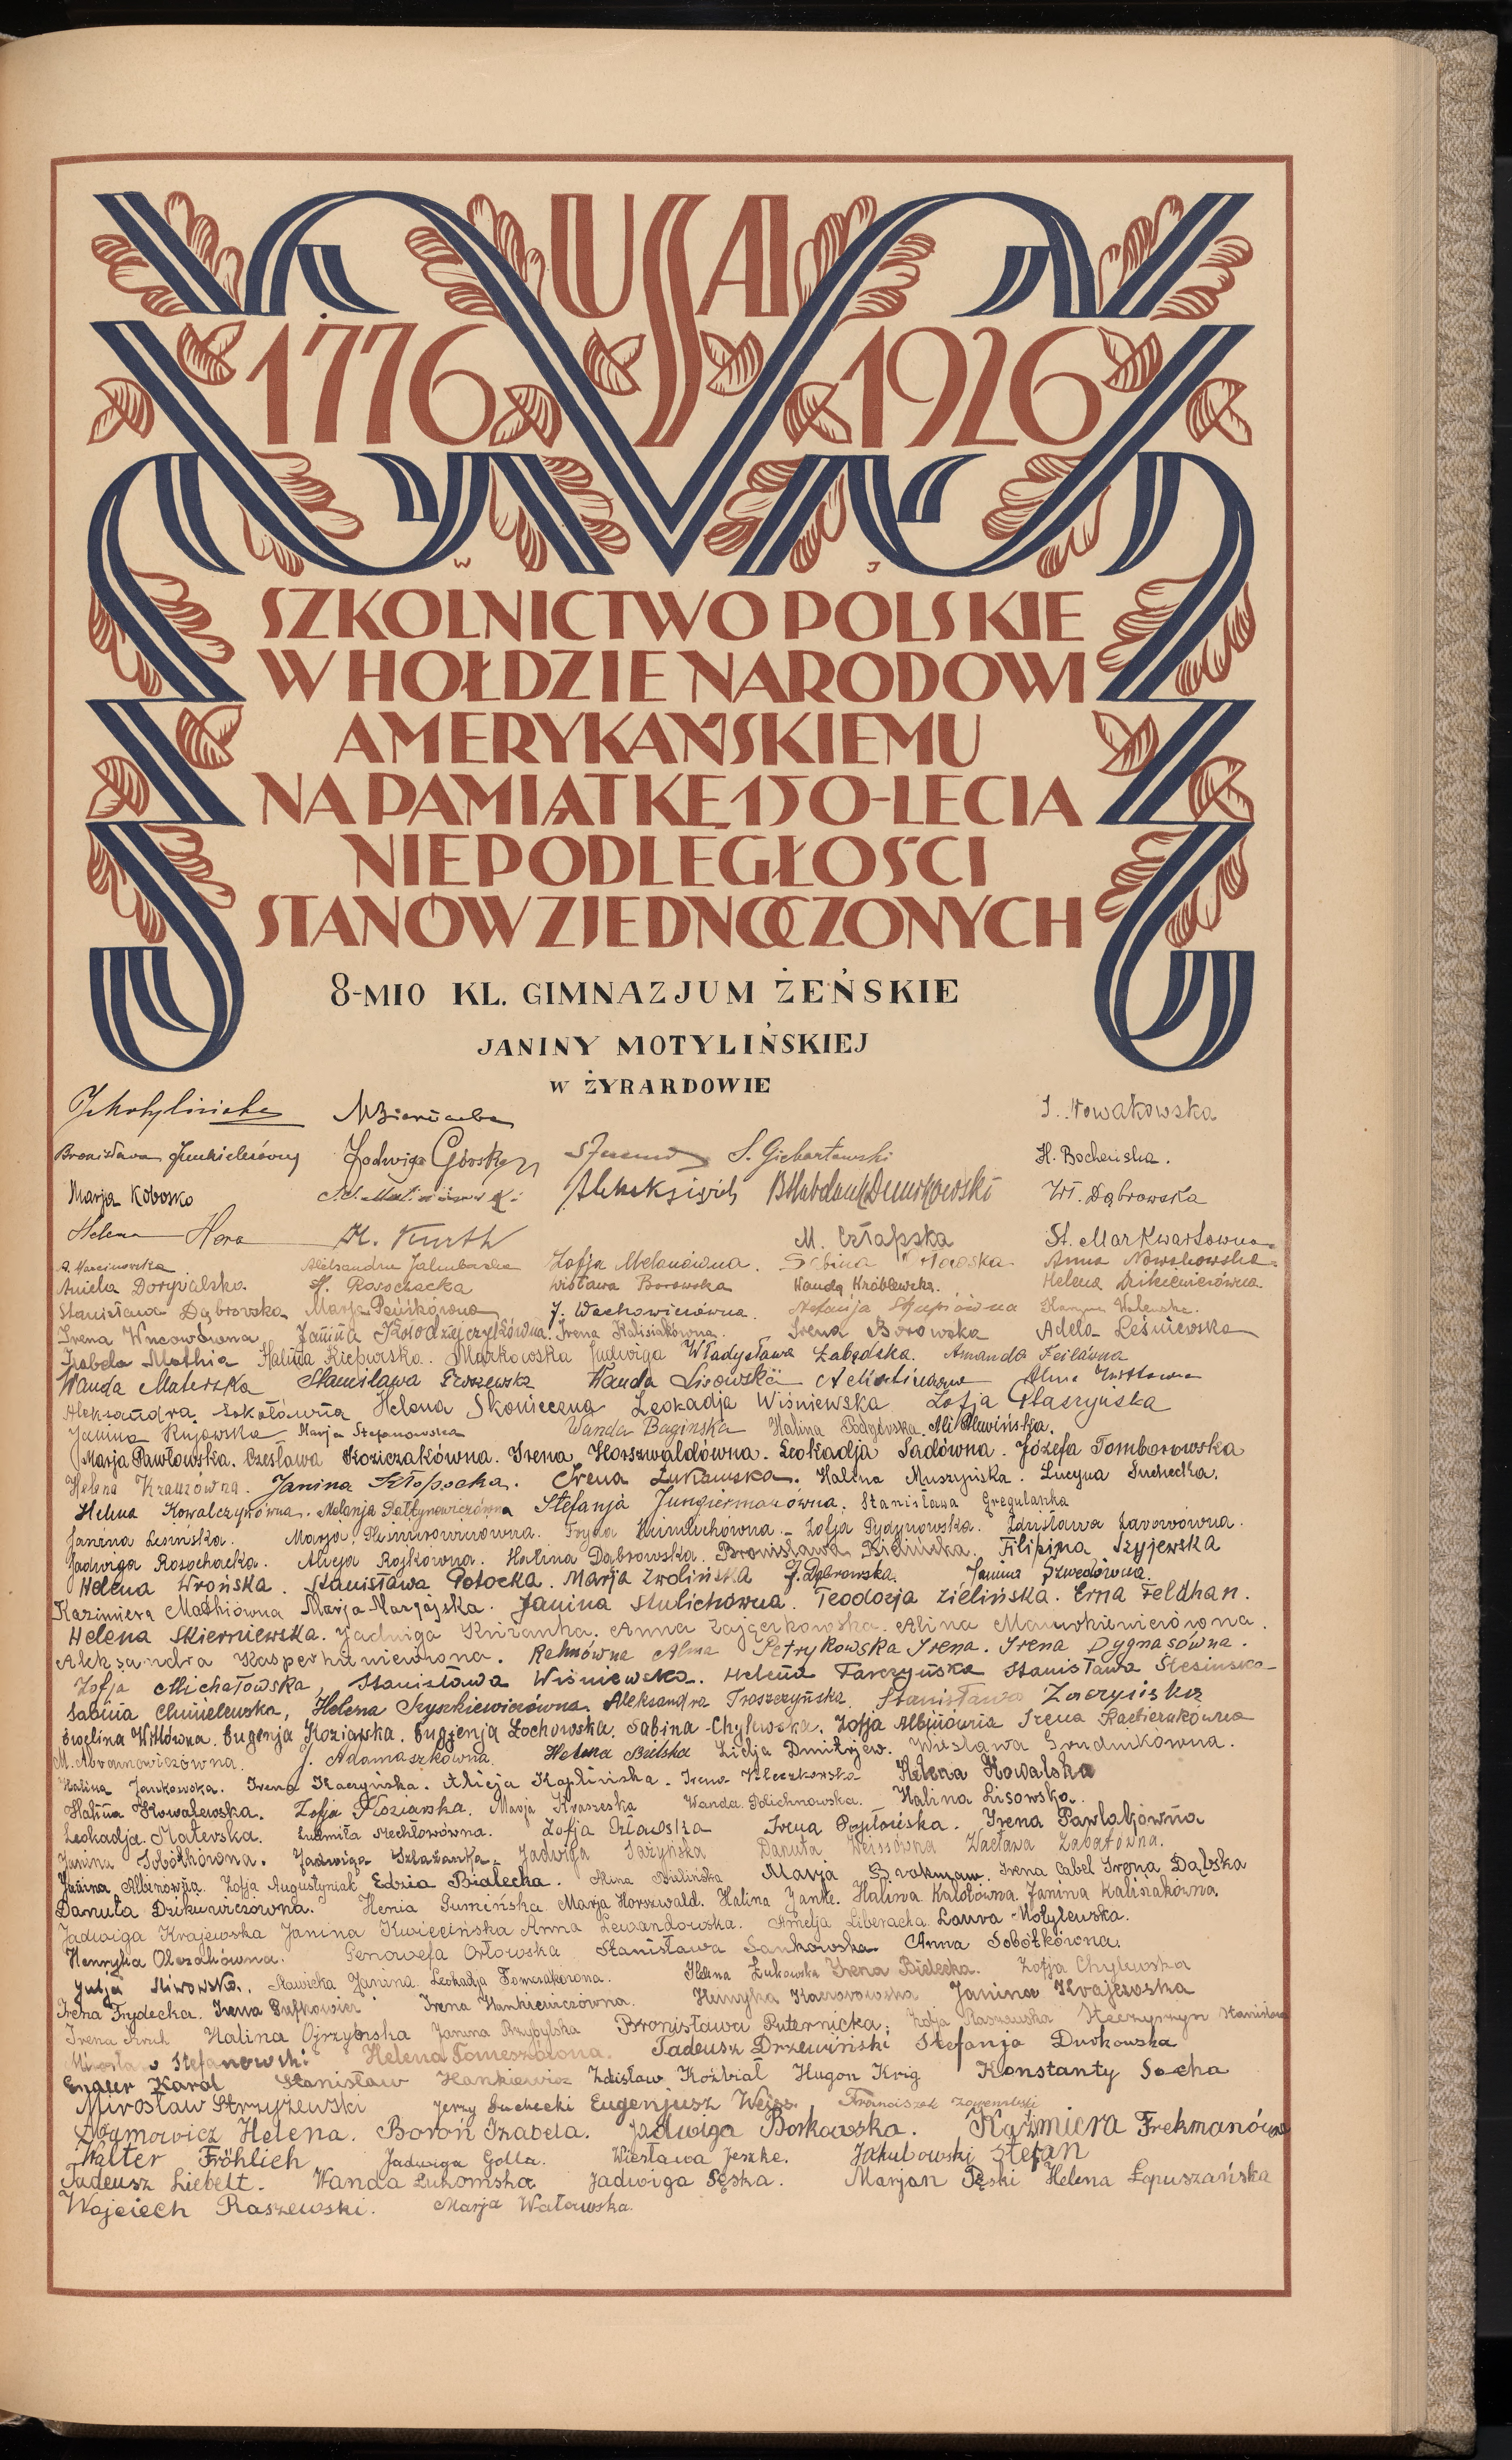 USA
1776 1926
W J
SZKOLNICTWO POLSKIE
W HOŁDZIE NARODOWI
AMERYKAŃSKIEMU
NA PAMIĄTKĘ 150-LECIA
NIEPODLEGŁOŚCI
STANÓW ZJEDNOCZONYCH
8-MIO KL. GIMNAZJUM ŻEŃSKIE
JANINY MOTYLIŃSKIEJ
W ŻYRARDOWIE
I. Nowakowska
Bronisława Jadwiga Górska S. Giebartowski H. Bocheńska.
Marja Kobosko Wł. Dąbrowska
Helena Hera H. Kurth M. Człapska St. Markwartówna
A. Marcinowska Aleksandra Jakubowska Zofja Melanówna. Sabina Anna Nowakowska
Aniela Dorywalska. H. Rosochacka Wisława Borowska Wanda Króblewska. Helena
Stanisława Dąbrowska Marja J. Wachowiczówna. Stefanja
Irena Janina Kołodziejczykówna. Irena Kalisiakówna. Irena Borowska Adela Leśniewska
Izabela Mathia Halina Kiepurska. Markowska Jadwiga Władysława Łabędzka. Amanda Feilówna
Wanda Materska Stanisława Wanda Lisowska
Aleksandra Sokołówna Helena Skonieczna Leokadja Wiśniewska Zofja Płaszyńska
Janina Kujawska Marja Stefanowska Wanda Bagińska Halina Podgórska.
Marja Pawłowska. Czesława Koziczakówna. Irena Horszwaldówna. Leokadja Sadówna. Józefa Tomborowska
Helena Krauzówna. Janina Kłopocka. Irena Łukawska. Halina Muszyńska. Lucyna Suchecka.
Helena Kowalczykówna. Melanja Stefanja Jungiermanówna. Stanisława Gregulanka
Janina Lesińska. Marja Fryda Zofja Pydynowska. Zdzisława
Jadwiga Rosochacka. Alicja Rojkówna. Halina Dąbrowska. Bronisława Bielnicka. Filipina Szyjewska
Helena Wrońska. Stanisława Potocka. Marja Zwolińska J. Dąbrowska. Janina Szwedówna.
Kazimiera Mathiówna Marja Janina Stulichówna. Teodozja Zielińska. Erna Feldhan.
Helena Skierniewska. Jadwiga Anna Zajączkowska. Alina
Aleksandra Rahnówna Alma Petrykowska Irena. Irena Dygnasówna.
Zofja Michałowska, Stanisława Wiśniewska. Helena Tarczyńska Stanisława Ślesińska
Sabina Chmielewska, Helena Szyszkiewiczówna. Aleksandra Troszczyńska. Stanisława Zaczyńska
Ewelina Wittówna. Eugenja Koziarska. Eugenja Żochowska. Sabina Chylewska. Zofja Albinówna Irena
M. Abramowiczówna. J. Adamaszkówna. Helena Bielska Lidja Dmitrjew. Wiesława Grudnikówna.
Halina Jankowska. Irena Kaczyńska. Alicja Kaplińska. Irena Helena Kowalska
Halina Kowalewska. Zofja Koziarska. Marja Kraszeska Wanda Polichnowska. Halina Lisowska.
Leokadja Materska. Ludmiła Mechłowówna. Zofja Orłowska Irena Irena Pawlakówna
Janina Sobótkówna. Jadwiga Szlazanka. Jadwiga Danuta Weissówna Wacława
Janina Albinówna Zofja Augustyniak Edzia Białecka. Alina Bielińska Marja Brokman. Irena Cabel Irena Dąbska
Danuta Henia Gumińska. Marja Horszwald. Halina Janke. Halina Kalotówna. Janina Kalisiakówna.
Jadwiga Krajewska Janina Kwiecińska Anna Lewandowska. Amelja Liberacha. Laura Motylewska.
Henryka Olszakówna. Genowefa Orłowska Stanisława Sankowska Anna Sobótkówna.
Julja Śliwowska. Sławicka Janina. Leokadja Tomczakówna. Helena Żukowska Irena Bielecka. Zofja Chylewska
Irena Frydecka. Irena Irena Hankiewiczówna. Henryka Janina Krajewska
Irena Halina Ojrzyńska Janina Przybylska Bronisława Puternicka. Zofja Raszewska Stanisława
Mirosław Stefanowski Helena Tomeszówna. Tadeusz Drzewiński Stefanja Dutkowska
Engler Karol Stanisław Hankiewicz Zdzisław Koźbiał Hugon Krig Konstanty Socha
Mirosław Strzyżewski Jerzy Suchecki Eugenjusz Weiss. Franciszek
Abramowicz Helena. Boroń Izabela. Jadwiga Borkowska. Kazimiera Frekmanówna
Walter Fröhlich Jadwiga Golla. Wiesława Jeszke. Jakubowski Stefan
Tadeusz Liebelt. Wanda Łukomska Jadwiga Sęska. Marjan Pęski Helena Łopuszańska
Wojciech Raszewski. Marja Watowska.